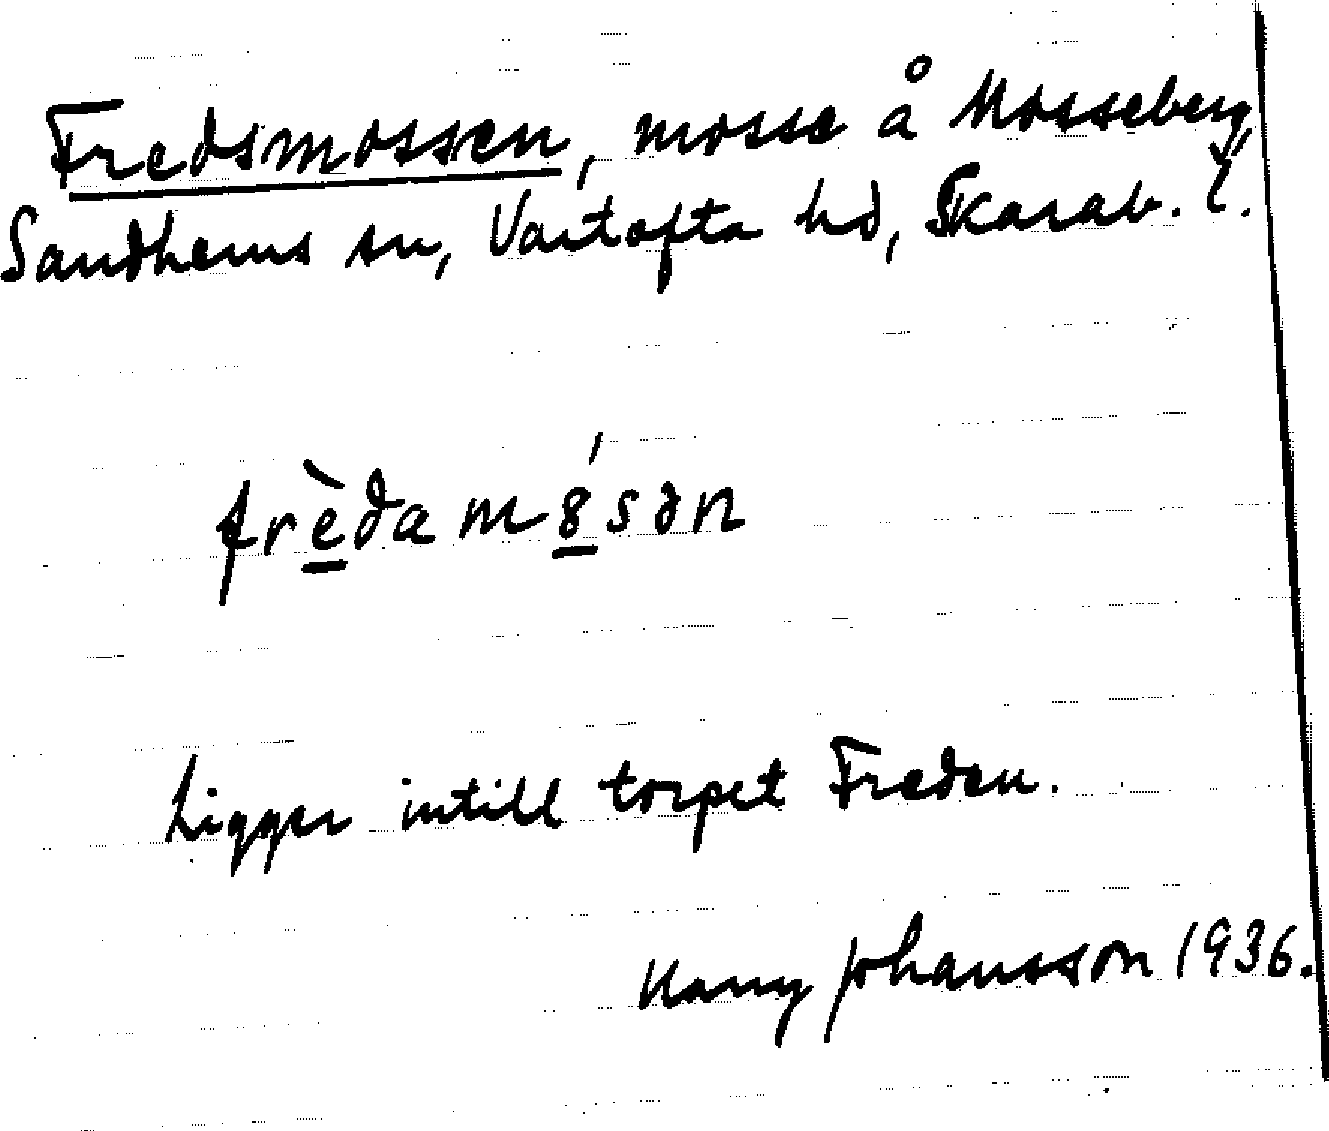 Fredsmossen, mosse å Mosseberg,
Sandhems sn, Vartofta hd, Skarab. l.
frèdam8́sən
Ligger intill torpet Freden.
Harry Johansson 1936.